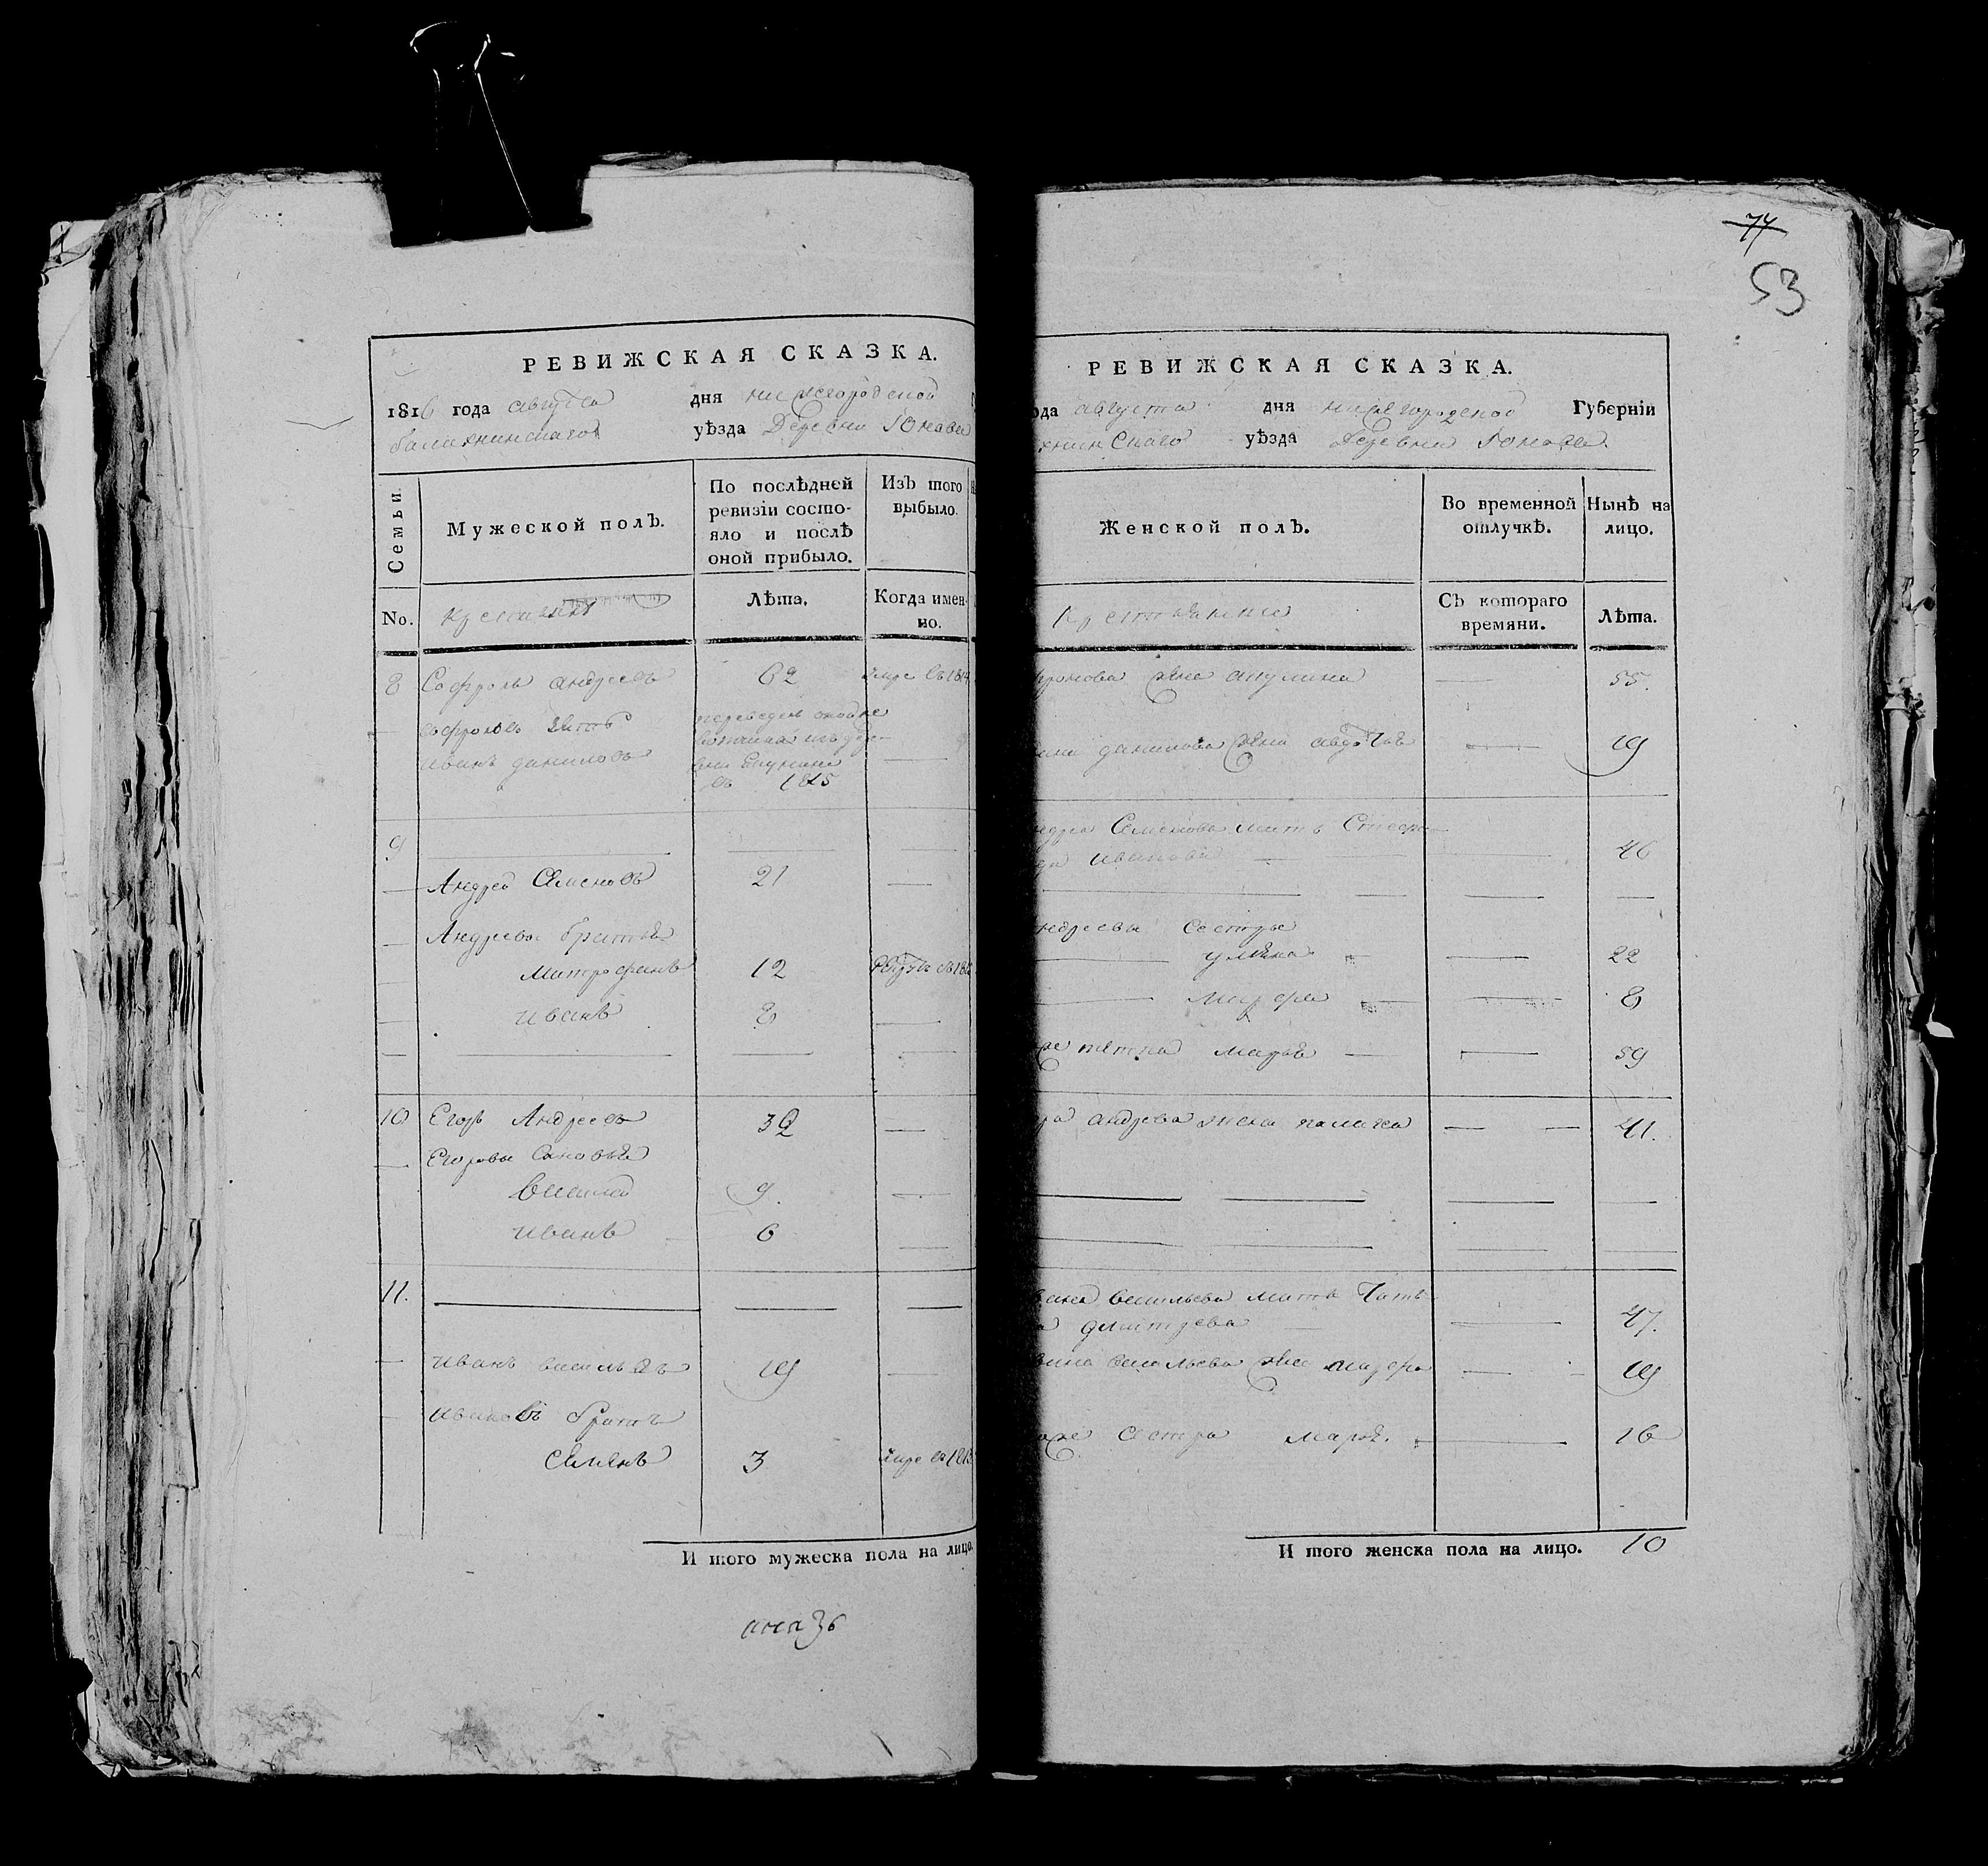 РЕВИЖСКАЯ СКАЗКА.
1816 года августа дня нижегородской
балахнинскаго уѣзда Деревни Юнава
Семьи.
Мужеской полъ.
По послѣдней ревизіи состо-
яло и послѣ
оной прибыло.
Изъ того
выбыло.
No.
крестьяня
Лѣта.
Когда имен-
но.
8 Софронъ андреевъ 62 умре въ 1814
софроновъ зять
иванъ даниловъ
въ 1815
9
Андрей Семеновъ 21
Андреевы братья
Митрофанъ 12
иванъ 8
10 Егоръ Андреевъ 32
Егоровы Сановья
Василей 9.
иванъ 6
11.
иванъ васильевъ 19
ивановъ братъ
Семенъ 3 умре въ 1813
И того мужеска пола на лицо.
74
53
РЕВИЖСКАЯ СКАЗКА.
ода августа дня нижегородской Губерніи
хнинскаго уѣзда Деревни Юнава.
Женской полъ.
Во временной
отлучкѣ.
Нынѣ на
лицо.
Съ котораго
времяни.
Лѣта.
фронова жена акулина 55.
данилова жена авдотья 19
Семенова мать Степани-
да иванова 46
ндреевы сестры
ульяна 22
мавра 8
тетка марья 59
ра андреева жена 41.
вана васильева мать Тать-
а дмитрева 47.
вана васильева жена 19
сестра марья. 16
И того женска пола на лицо. 10